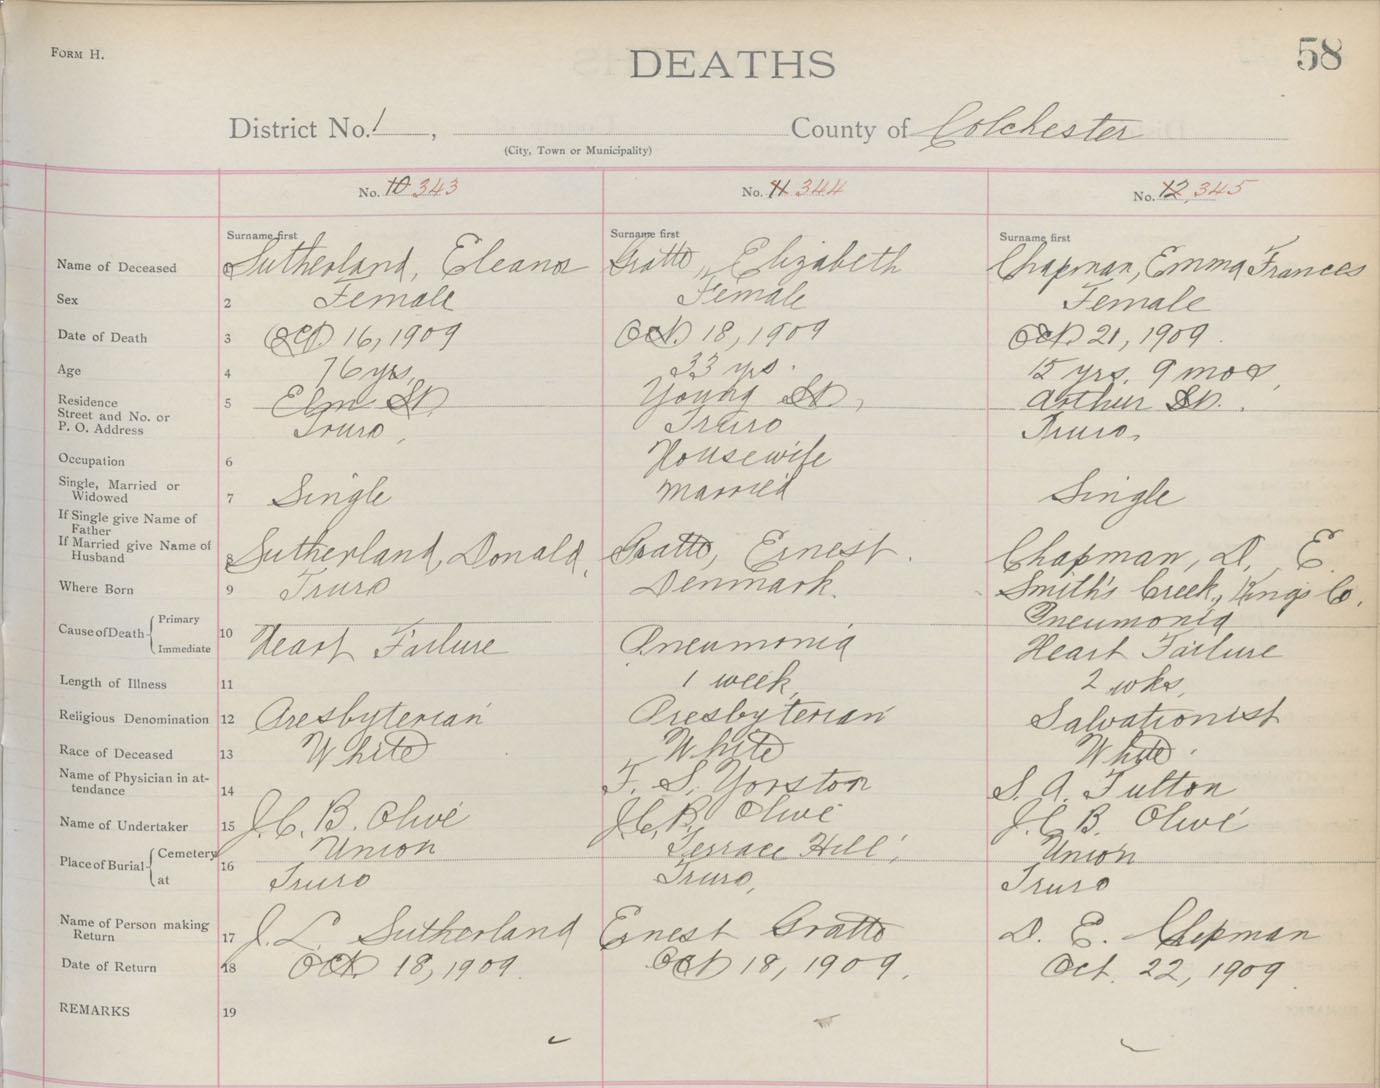 FORM H.
DEATHS
58
District No. 1, County of Colchester
(City, Town or Municipality)
No. 10 343 No. 11 344 No. 12, 345
Surname first Surname first Surname first
Name of Deceased 1 Sutherland, Eleanor Gratto, Elizabeth Chapman, Emma Frances
Sex 2 Female Female Female
Date of Death 3 Oct 16, 1909 Oct. 18, 1909 Oct 21, 1909.
Age 4 76 yrs. 33 yrs. 15 yrs. 9 mos.
Residence 5 Elm St. Young St, Arthur St.
Street and No. or
P. O. Address Truro, Truro Truro.
Occupation 6 Housewife
Single, Married or
Widowed 7 Single Married Single
If Single give Name of
Father
If Married give Name of
Husband 8 Sutherland, Donald, Gratto, Ernest. Chapman, D. E.
Where Born 9 Truro Denmark. Smith's Creek, Kings Co.
Cause of Death Primary Pneumonia
10 Immediate Heart Failure Pneumonia Heart Failure
Length of Illness 11 1 week, 2 wks,
Religious Denomination 12 Presbyterian Presbyterian Salvationist
Race of Deceased 13 White White White.
Name of Physician in at-
tendance 14 F. S. Yorston S. A. Fulton
Name of Undertaker 15 J. C. B. Olive J. C. B. Olive J. C. B. Olive
Place of Burial Cemetery 16 Union Terrace Hill, Union
at Truro Truro, Truro
Name of Person making
Return 17 J. L. Sutherland Ernest Gratto D. E. Chapman
Date of Return 18 Oct 18, 1909. Oct 18, 1909. Oct. 22, 1909.
REMARKS 19